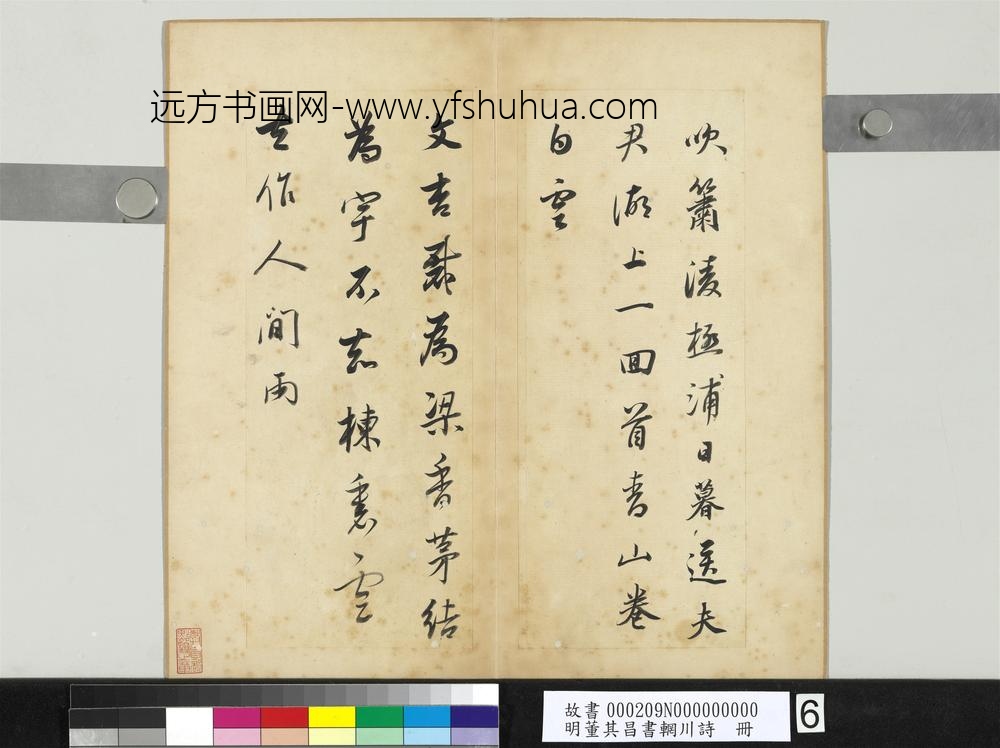 远方书画网-www.yfshuhua.com
吹簫淩極浦日暮送夫
君湖上一回首青山卷
白雲
文杏裁為梁香茅結
為宇不知棟裏雲
去作人間雨
故書 000209N000000000
明董其昌書輞川詩 冊
6